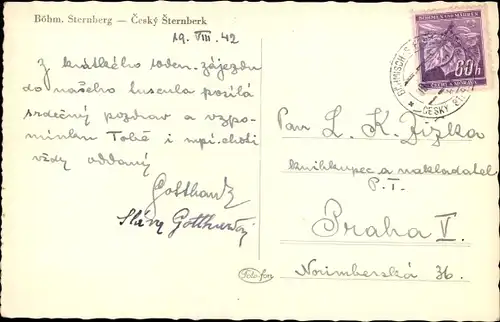 Böhm. Sternberg — Český Šternberk
19. VIII. 42
Z krátkého 10den. zájezdu
do našeho tuscula posílá
srdečný pozdrav a vzpo-
mínku Tobě i mpí. choti
vždy oddaný
Gotthard
Sláva Gotthardový
Foto-fon
BÖHMEN UND MÄHREN
60h
ČECHY A MORAVA
BÖHMISCH
ČESKÝ
Pan L. K. Žižka
knihkupec a nakladatel
P. T.
Praha V.
Norimberská 36.